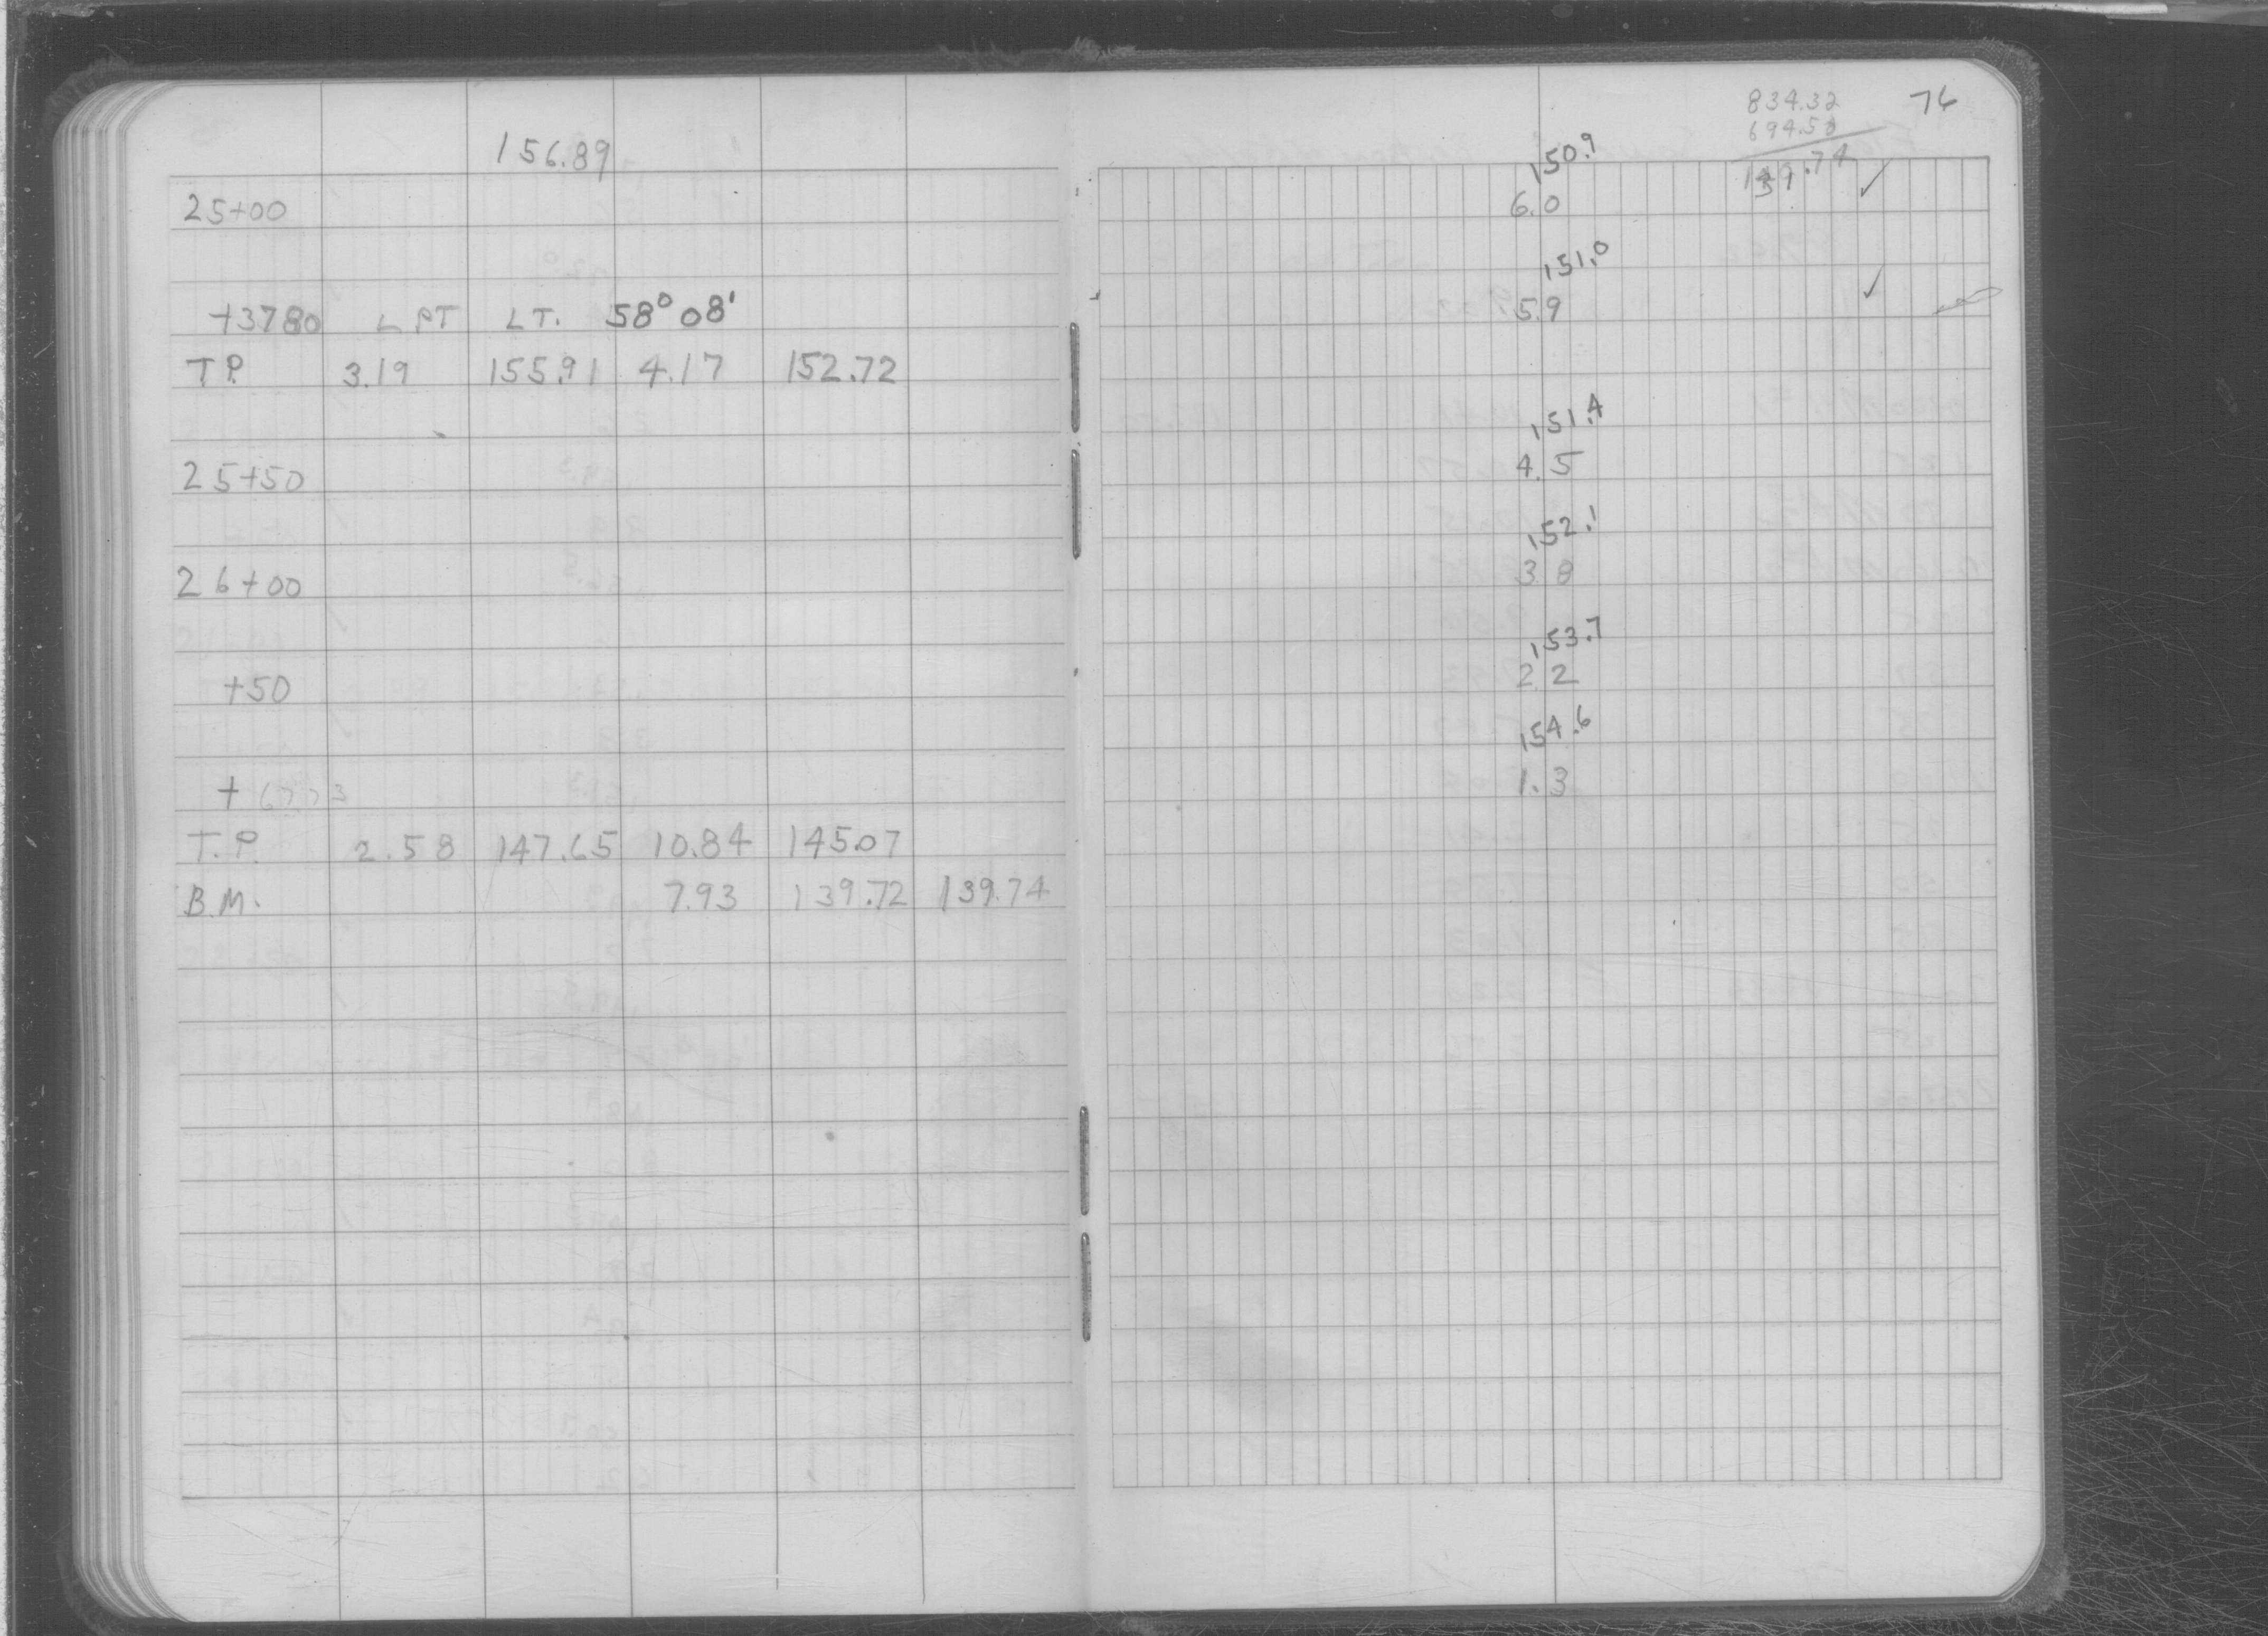 156.89
25+00
+3780 L PT LT. 58° 08'
T.P. 3.19 155.91 4.17 152.72
25+50
26+00
+50
+
T.P. 2.58 147.65 10.84 145.07
B.M. 7.93 139.72 139.74
76
834.32
694.58
150.9
6.0
151.0
5.9
151.4
4.5
152.1
3 8
153.7
2 2
154.6
1.3